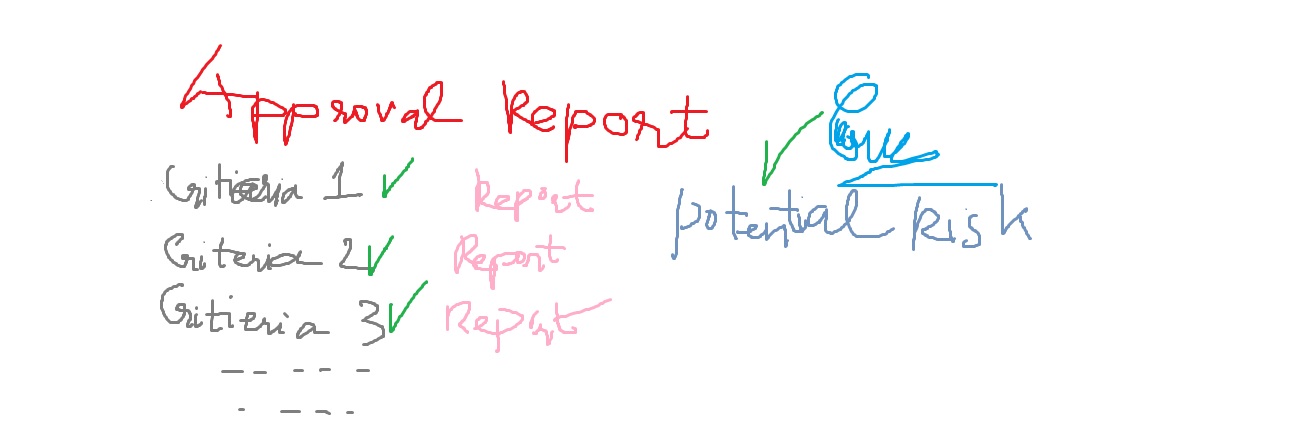 Approval Report
Critieria 1 Report
Criteria 2 Report
Critieria 3 Report
potential Risk